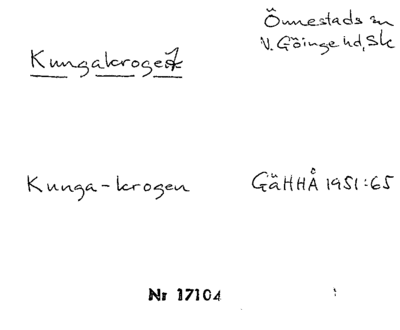 Önnestads sn
V. Göinge hd, Sk
Kungakrogen
Kunga-krogen
GäHHÅ 1951:65
Nr 17104